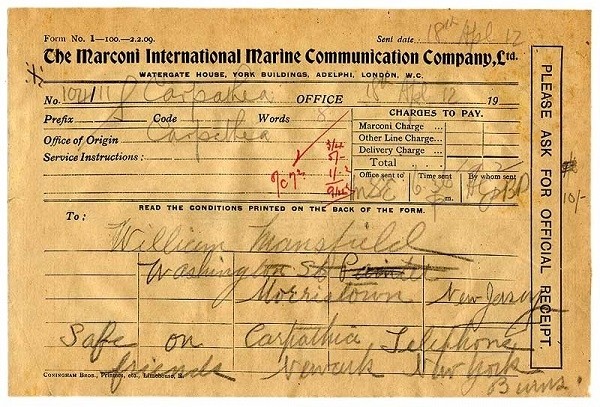 Form No. 1—100.—2.2.09.
Sent date: 18th Apl 12
The Marconi International Marine Communication Company, Ltd.
WATERGATE HOUSE, YORK BUILDINGS, ADELPHI, LONDON, W.C.
No. Carpathia OFFICE 18th Apl 12 19
Prefix Code Words 8
Office of Origin Carpathia
Service Instructions:
CHARGES TO PAY.
Marconi Charge ...
Other Line Charge ...
Delivery Charge ...
Total
Office sent to Time sent By whom sent
MSE m.
READ THE CONDITIONS PRINTED ON THE BACK OF THE FORM.
To:
William Mansfield
Washington St
Morristown New Jersey
Safe on Carpathia Telephone
friends Newark New York
Burns.
CONINGHAM BROS., Printers, etc., Limehouse, E.
PLEASE ASK FOR OFFICIAL RECEIPT.
10/-